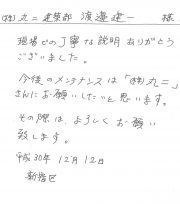 (株)丸二 建築部 渡邉建一 様
現場での丁寧な説明ありがとう
ございました。
今後のメンテナンスは「(株)丸二」
さんにお願いしたいと思います。
その際は、よろしくお願い
致します。
平成30年 12月 12日
新宿区